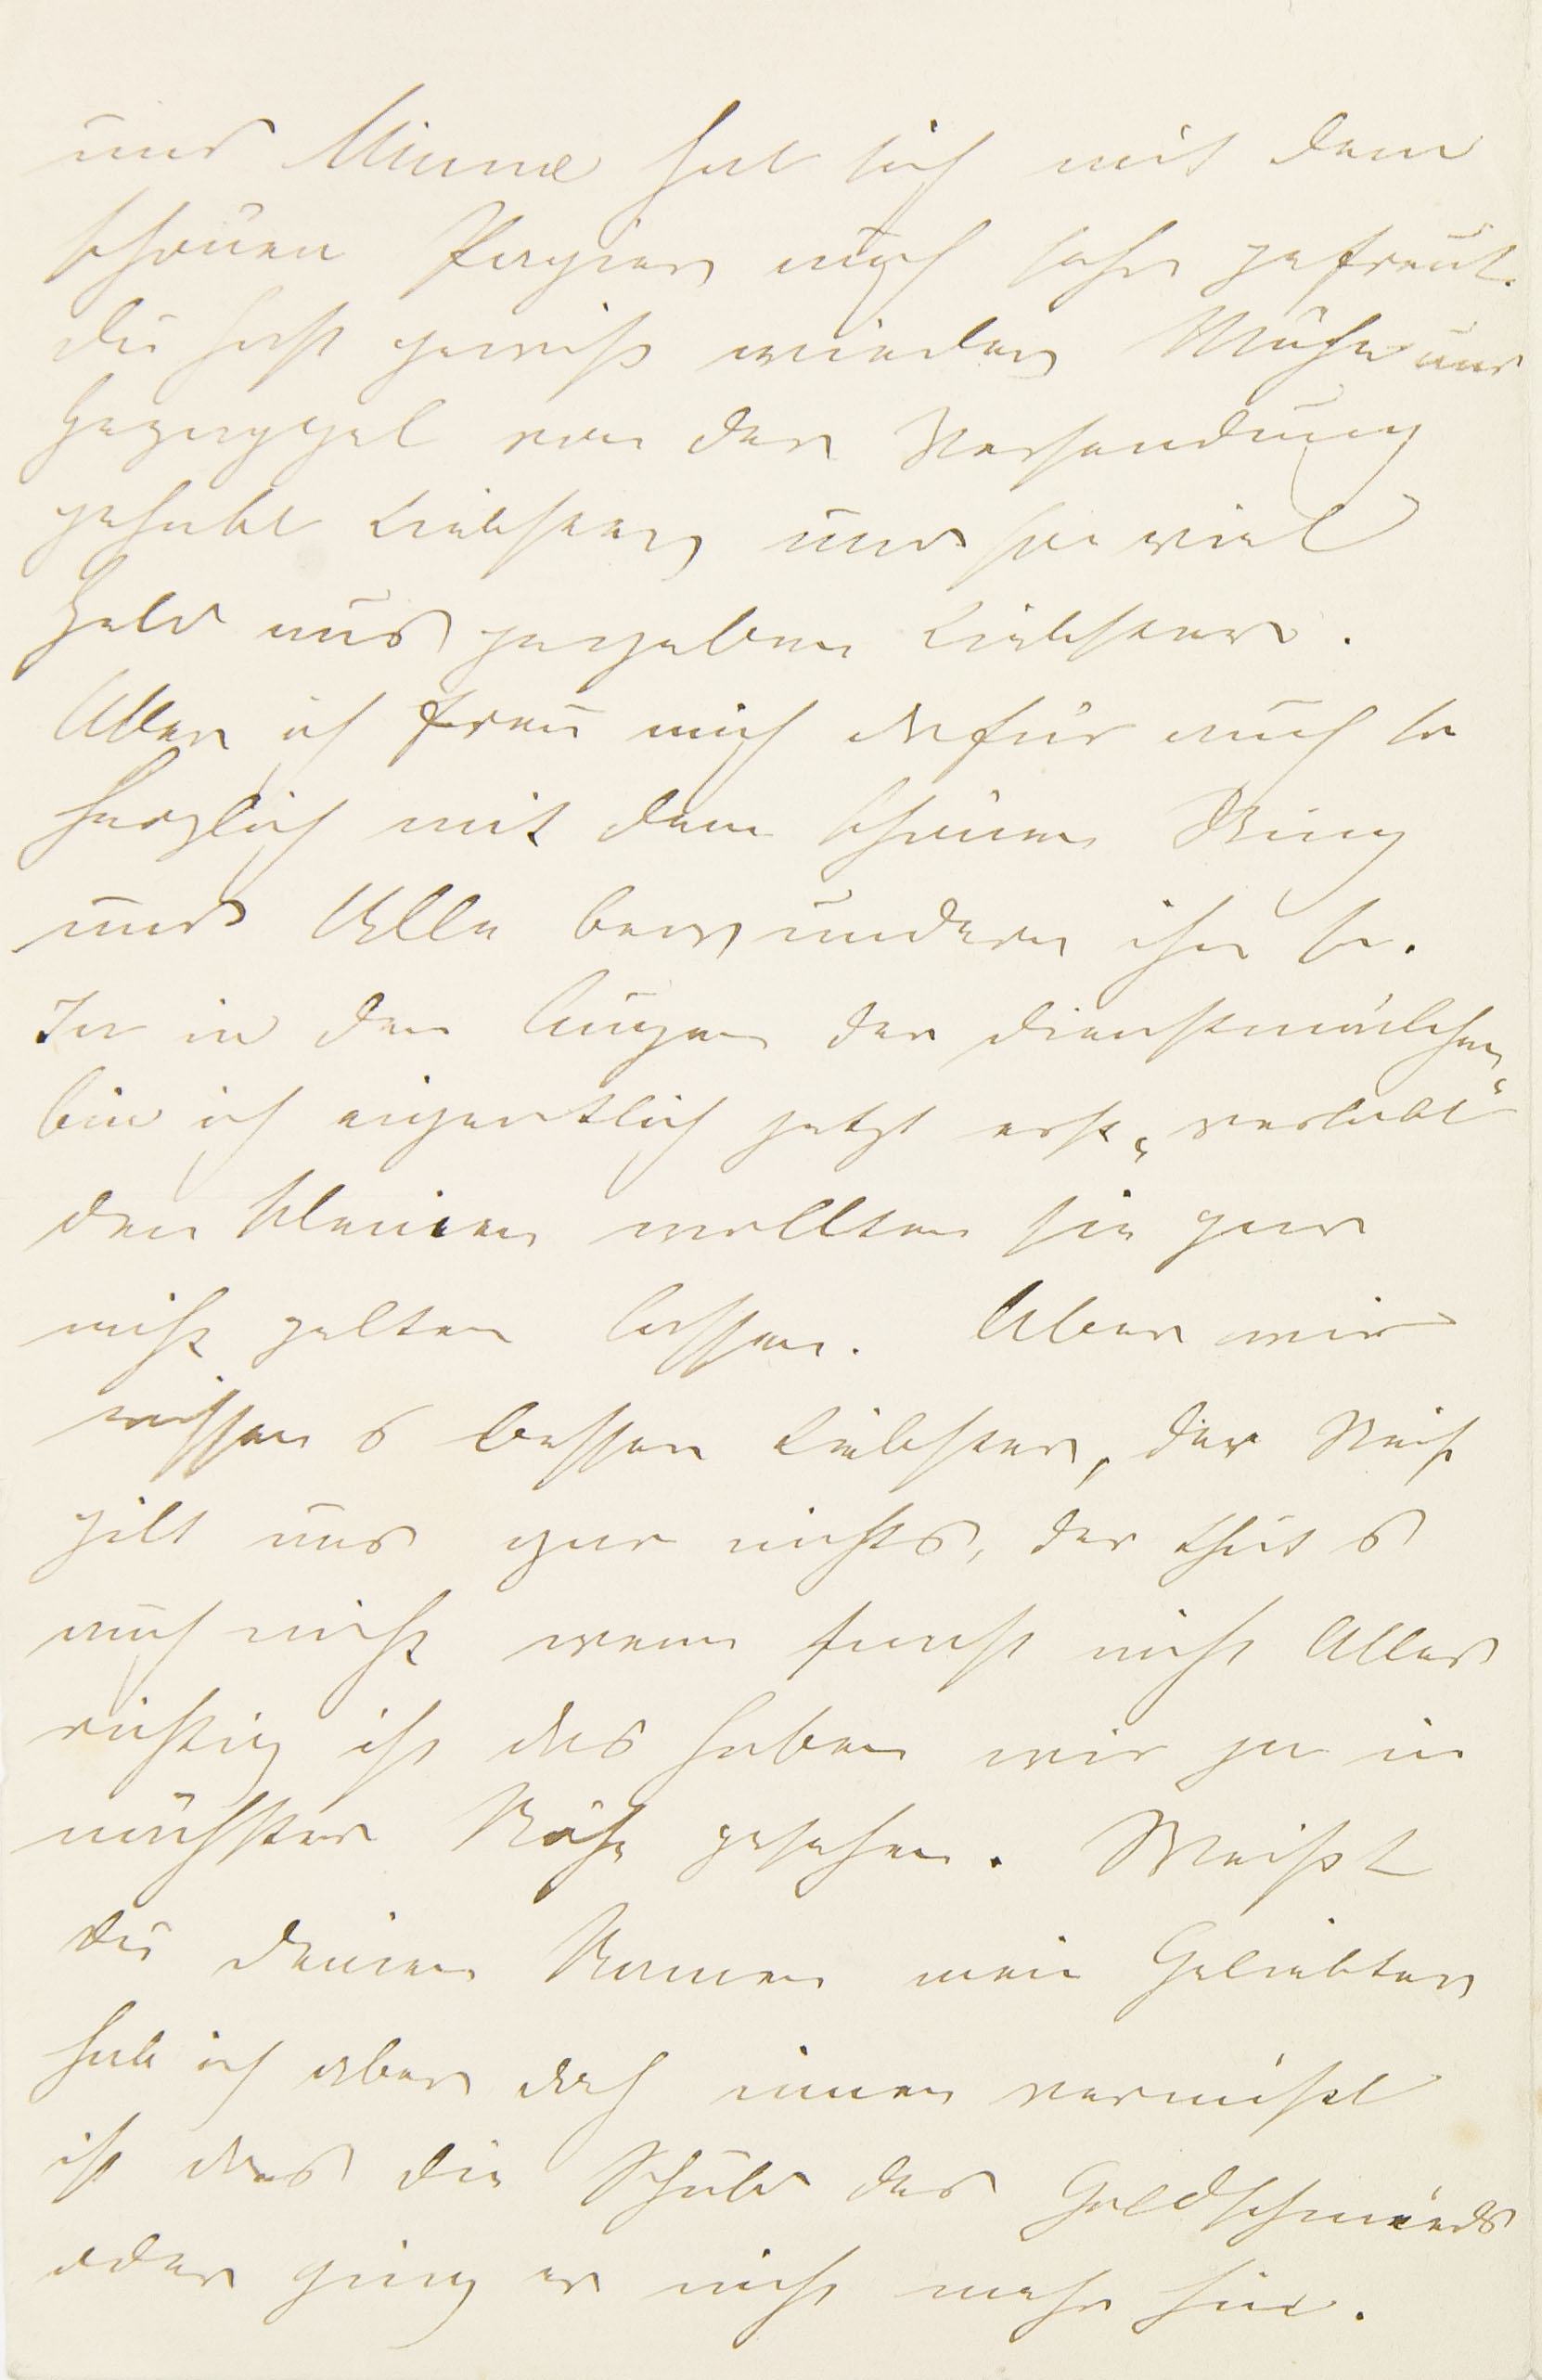 und Minna hat sich mit dem
schönen Papier auch sehr gefreut.
Du hast gewiß wieder Mühe und
Gezappel von der Versendung
gehabt Liebster und so viel
Geld aus gegeben Liebster.
Aber ich freu mich dafür auch so
herzlich mit dem schönen Ring
und Alle bewundern ihn so.
Ja in den Augen der Dienstmädchen
bin ich eigentlich jetzt erst „verlobt“
den kleinen wollten sie gar
nicht gelten lassen. Aber wir
wissen s besser Liebster, der Reif
gilt uns gar nichts, der thut s
auch nicht wenn sonst nicht Alles
richtig ist das haben wir ja in
nächster Nähe gesehen. Weißt
du deinen Namen mein Geliebter
hab ich aber doch innen vermißt
ist das die Schuld des Goldschmieds
oder ging er nicht mehr hin.